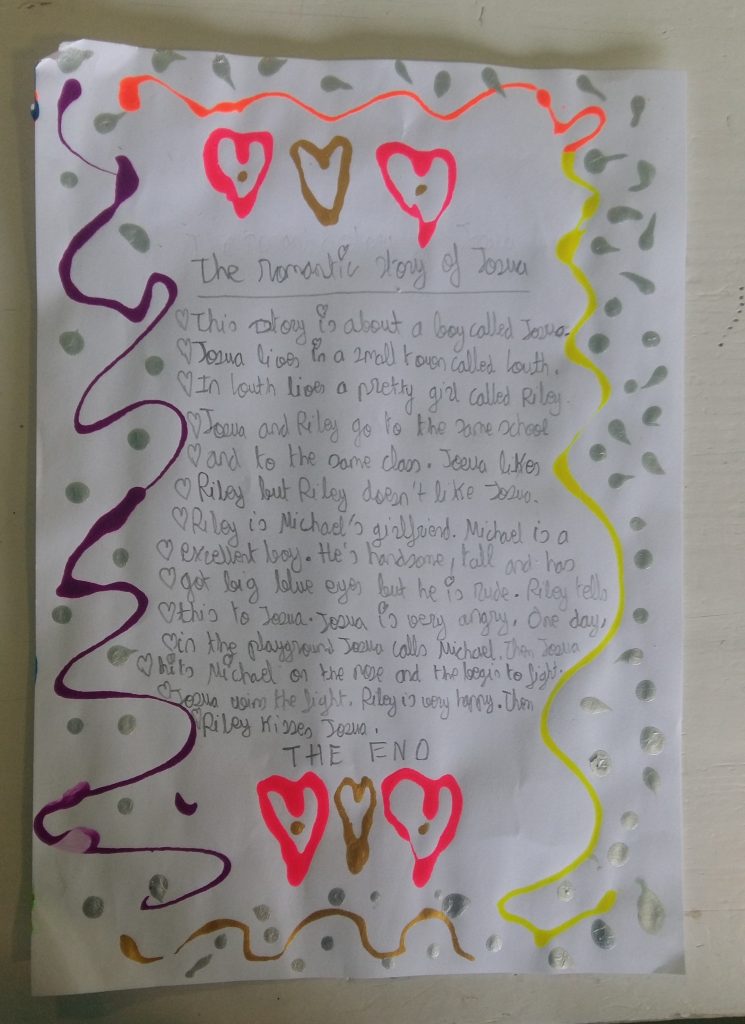 The romantic story of Josua
This story is about a boy called Josua.
Josua lives in a small town called Louth.
In Louth lives a pretty girl called Riley.
Josua and Riley go to the same school
and to the same class. Josua likes
Riley but Riley doesn't like Josua.
Riley is Michael's girlfriend. Michael is a
excellent boy. He's handsome, tall and has
got big blue eyes but he is rude. Riley tells
this to Josua. Josua is very angry. One day,
in the playground Josua calls Michael. Then Josua
hits Michael on the nose and the begin to fight.
Josua wins the fight. Riley is very happy. Then
Riley Kisses Josua.
THE END